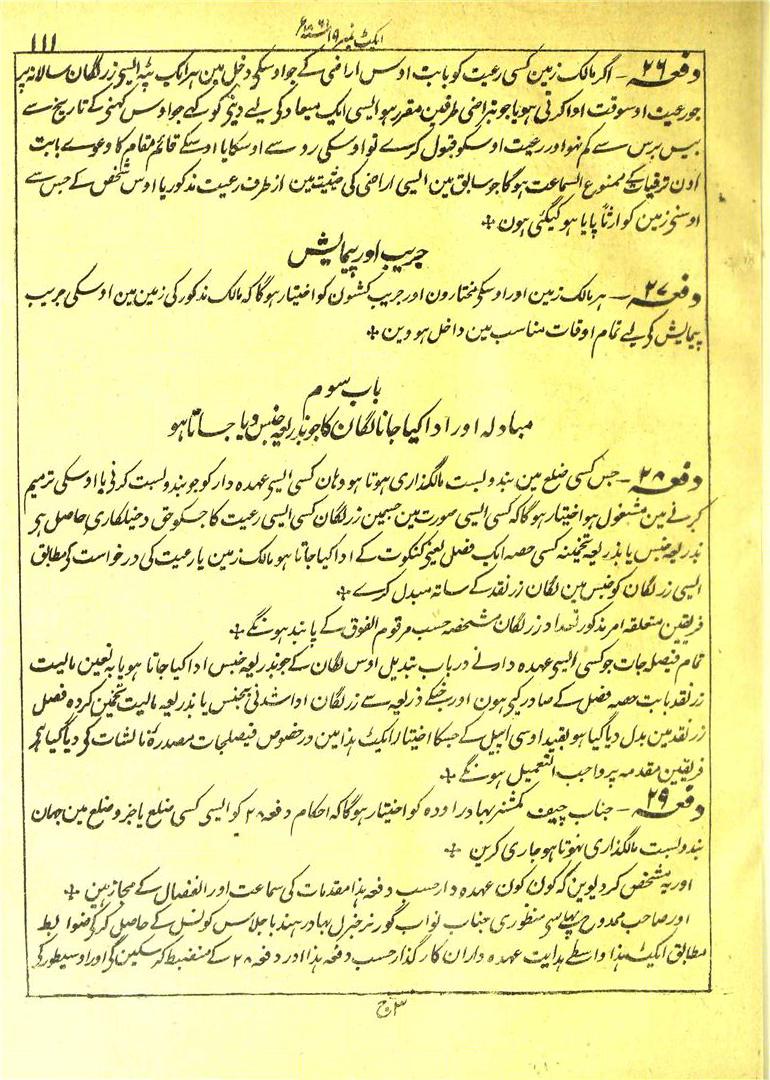 ایکٹ نمبر ۱۹ سنہ ۱۸۶۸ع
۱۱۱
دفعہ ۲۶ ۔ اگر مالک زمین کسی رعیت کو بابت اوس اراضی کے جو اوسکی دخل مین ہر ایک پٹہ ایسی زر لگان سالانہ پر
جو رعیت اوسوقت ادا کرتی ہو یا جو بتراضی طرفین مقرر ہو ایسی ایک میعاد کے لیے دینی کو کہے جو اوس کہنی کے تاریخ سے
بیس برس سے کم نہو اور رعیت اوسکو قبول کرے تو اوسکی رو سے اوسکا یا اوسکے قائم مقام کا دعوے بابت
اون ترقیات کے ممنوع السماعت ہوگا جو سابق مین ایسی اراضی کی حیثیت مین از طرف رعیت مذکور یا اوس شخص کے جس سے
اوسنی زمین کو ارثاً پایا ہو کیگئی ہون ✢
جریب اور پیمایش
دفعہ ۲۷ ۔ ہر مالک زمین اور اوسکی مختارون اور جریب کشون کو اختیار ہوگا کہ مالک مذکور کی زمین مین اوسکی جریب
پیمایش کے لیے تمام اوقات مناسب مین داخل ہووین ✢
باب سوم
مبادلہ اور ادا کیا جانا لگان کا جو بذریعہ جنس دیا جاتا ہو
دفعہ ۲۸ ۔ جس کسی ضلع مین بندوبست مالگذاری ہوتا ہو وہان کسی ایسی عہدہ دار کو جو بندوبست کرنی یا اوسکی ترمیم
کرنے مین مشغول ہو اختیار ہوگا کہ کسی ایسی صورت مین جسمین زر لگان کسی ایسی رعیت کا جسکو حق دخیلکاری حاصل ہر
بذریعہ جنس یا بذریعہ تخمینہ کسی حصہ ایک فصل یعنی کنکوت کے ادا کیا جاتا ہو مالک زمین یا رعیت کی درخواست کے مطابق
ایسی زر لگان کو جنس مین لگان زر نقد کے ساتہ مبدل کرے ✢
فریقین متعلقہ امر مذکور تعداد زر لگان مشخصہ حسب مرقوم الفوق کے پابند ہونگے ✢
تمام فیصلہ جات جو کسی ایسی عہدہ دار نے درباب تبدیل اوس لگان کے جو بذریعہ جنس ادا کیا جاتا ہو یا بہ تعین مالیت
زر نقد بابت حصہ فصل کے صادر کیی ہون اور جنکے ذریعہ سے زر لگان ادا شدنی بجنس یا بذریعہ مالیت تخمین کردہ فصل
زر نقد مین بدل دیا گیا ہو بقید اوسی اپیل کے جسکا اختیار ایکٹ ہذا مین درخصوص فیصلجات مصدرۂ نالشات کی دیا گیا ہر
فریقین مقدمہ پر واجب التعمیل ہونگے ✢
دفعہ ۲۹ ۔ جناب چیف کمشنر بہادر اودہ کو اختیار ہوگا کہ احکام دفعہ ۲۸ کو ایسی کسی ضلع یا جزو ضلع مین جہان
بندوبست مالگذاری نہوتا ہو جاری کرین ✢
اور یہ مشخص کردیوین کہ کون کون عہدہ دار حسب دفعہ ہذا مقدمات کی سماعت اور انفصال کے مجاز ہین ✢
اور صاحب ممدوح پہلے سی منظوری جناب نواب گورنر جنرل بہادر ہند باجلاس کونسل کے حاصل کرکی ضوابط
مطابق ایکٹ ہذا واسطے ہدایت عہدہ داران کارگذار حسب دفعہ ہذا اور دفعہ ۲۸ کے منضبط کر سکین گی اور اوسیطور کی